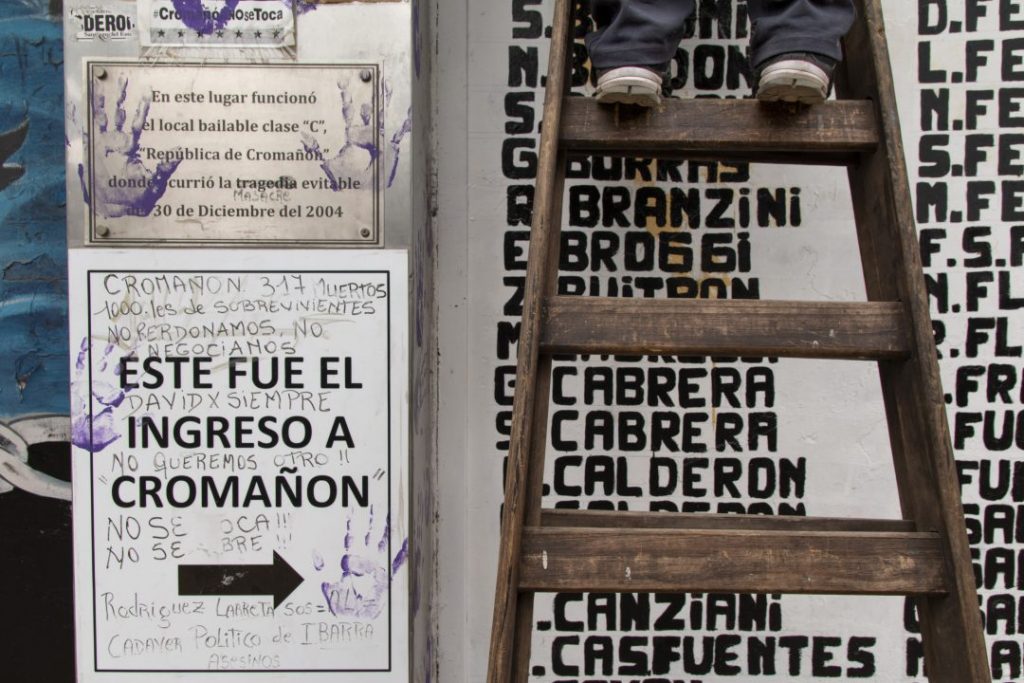 DEROI
#CromañónNoSeToca
En este lugar funcionó
el local bailable clase “C”,
“República de Cromañón”
donde ocurrió la tragedia evitable
MASACRE
30 de Diciembre del 2004
CROMAÑON 317 MUERTOS
1000.les de SOBREVINIENTES
NO PERDONAMOS, NO
NEGOCIAMOS
ESTE FUE EL
DAVID X SIEMPRE
INGRESO A
NO QUEREMOS OTRO !!
"CROMAÑON"
NO SE OCA!!!
NO SE BRE !!
Rodriguez LARRETA SOS=
CADAVER Politico de IBARRA
ASESINOS
G. BURRAS
BRANZINI
BROGGI
Z. BUITRON
CABRERA
CABRERA
.CALDERON
CALDERON
.CANZIANI
.CASFUENTES
D.FE
L.FE
N.FE
S.FE
M.FE
F.S.F
N.FL
.FL
.FRA
FU
FU